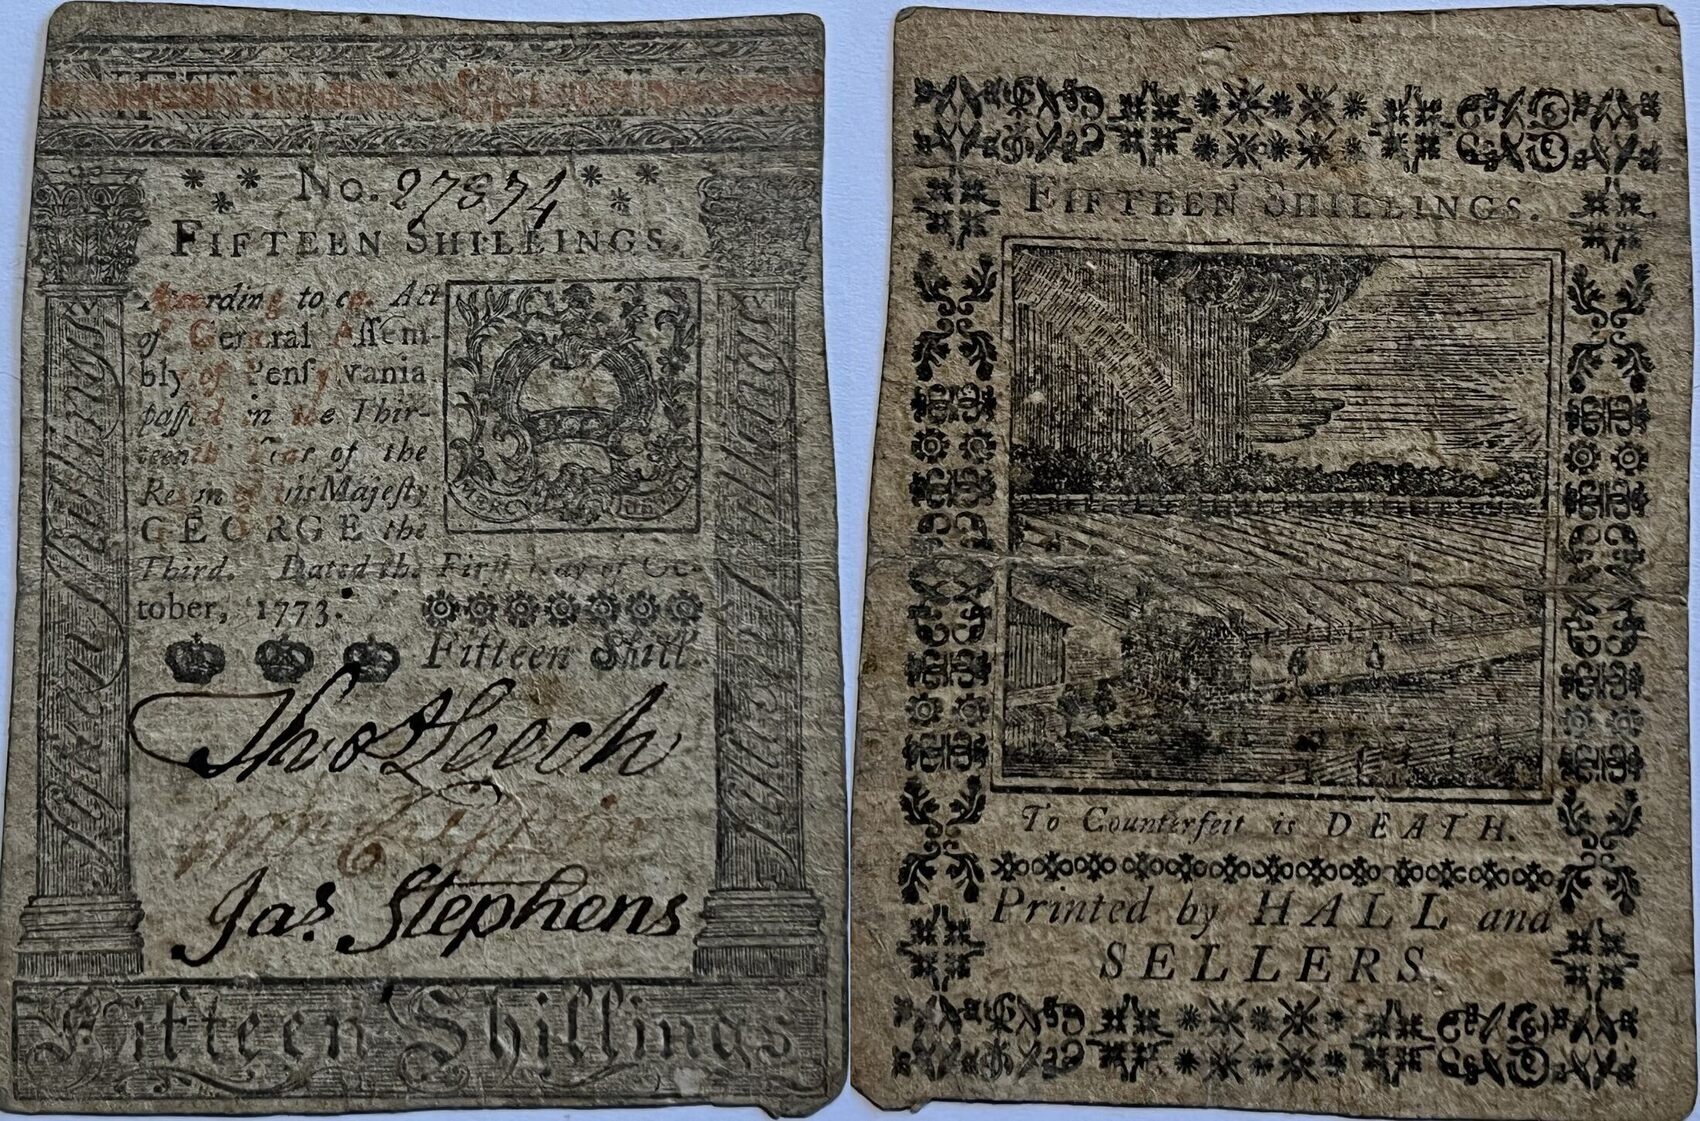 No. 27874
FIFTEEN SHILLINGS.
According to an Act
of General Aſſem-
bly of Penſylvania
paſſed in the Thir-
teenth Year of the
Reign of his Majeſty
GEORGE the
Third. Dated the Firſt Day of Oc-
tober, 1773.
XV
XV
MERCY JUSTICE
Fifteen Shill.
Thos Leech
Jas. Stephens
Fifteen Shillings
Fifteen Shillings
Fifteen Shillings
FIFTEEN SHILLINGS.
To Counterfeit is DEATH.
Printed by HALL and
SELLERS.